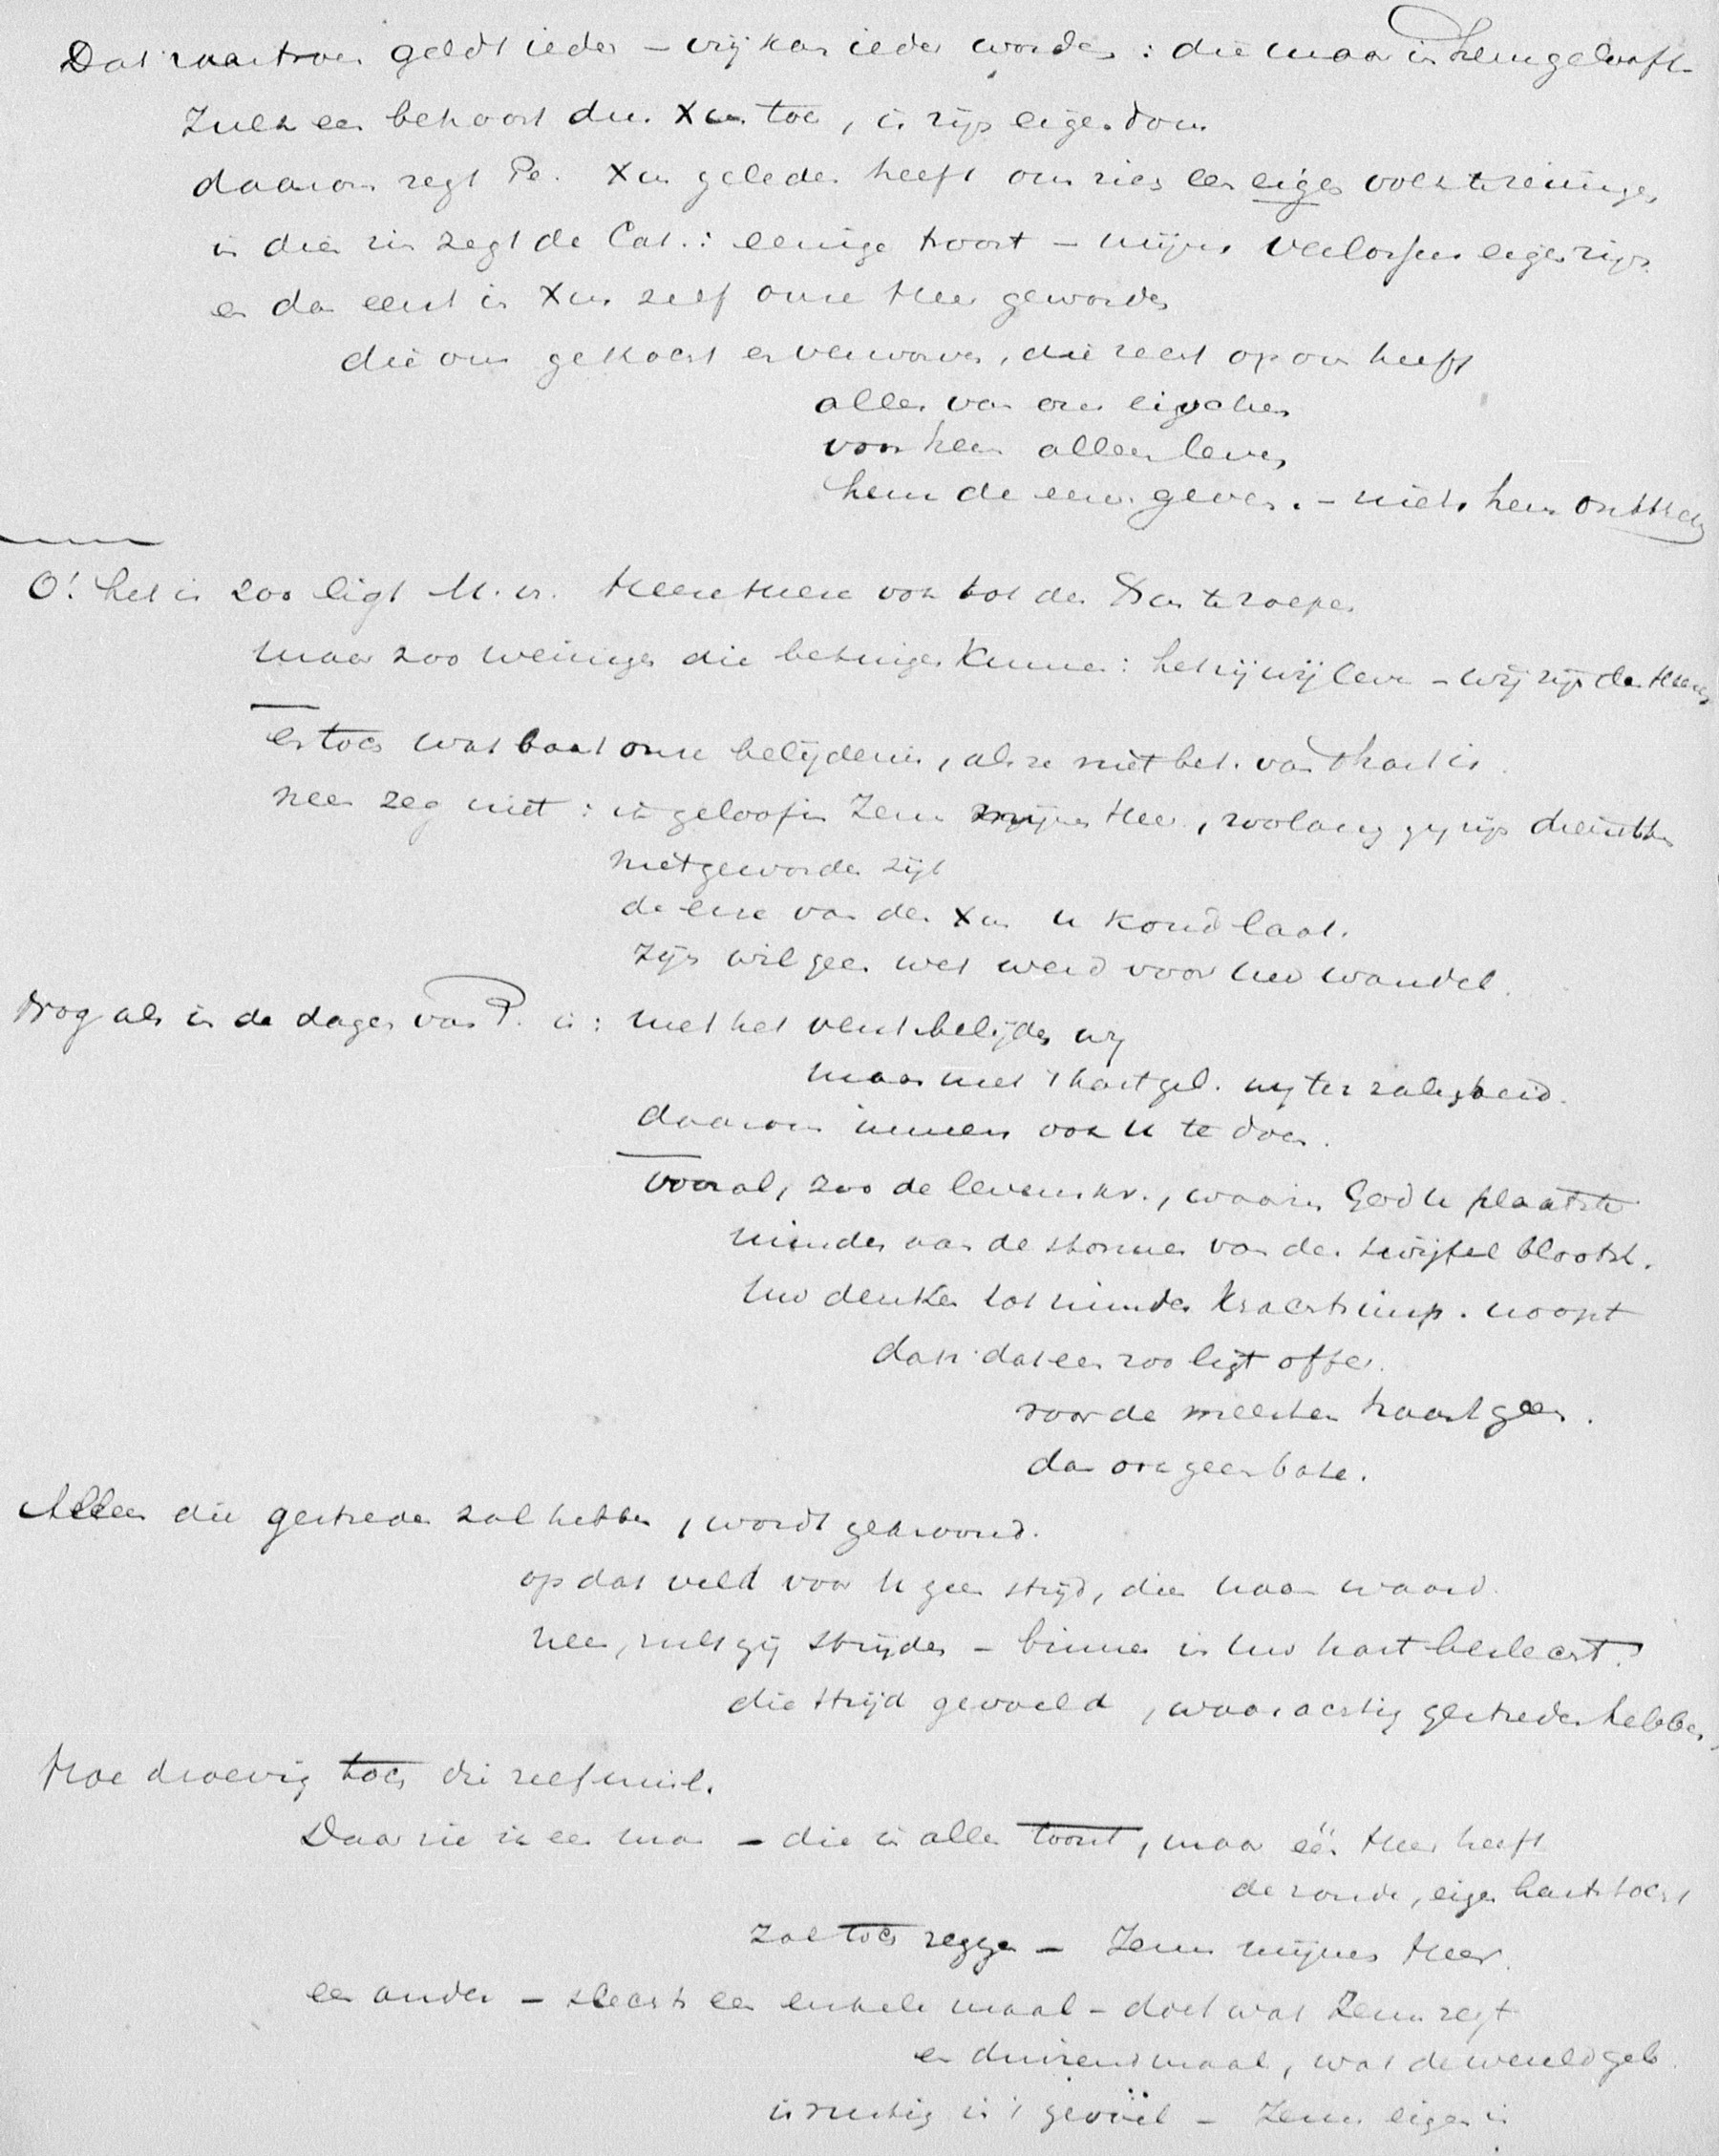 Dat rantsoen geldt ieder – vrij kan ieder worden : die maar in Hem gelooft
Zulk een behoort den Xus toe, is zijn eigendom
daarom zegt Pe. Xus geleden heeft om zich een eigen volk te reinigen
in dien zin zegt de Cat. : eenige troost – mijns verlossers eigen zijn
en dan eerst is Xus zelf onze Heer geworden
die ons gekocht en verworven, die recht op ons heeft
alles van ons eischen
voor hem alleen leven
hem de eer geven. – niets hem onttrekken
O! het is zoo ligt M. vr. Heere Heere ook tot den Xus te roepen
maar zoo weinigen die betuigen kunnen : hetzij wij leven – wij zijn des Heeren
en toch wat baat onze belijdenis, als ze niet bel. van 't hart is.
neen zeg niet : ik geloof in Jezus mijnen Heer, zoolang gij zijn dienstkn
niet geworden zijt
de eere van den Xus u koud laat.
zijn wil geen wet werd voor uw wandel.
Nog als in de dagen van P. is : met het verst. belijden wij
maar met 't hart gel. wij ter zaligheid.
daarom immers ook u te doen.
vooral, zoo de levenskr., waarin God u plaatste
minder aan de stormen van den twijfel blootst.
uw denken tot minder krachtsinsp. noopt
dan is dat een zoo ligt offer.
voor de meesten haast geen.
dan ook geen bate.
Alleen die gestreden zal hebben, wordt gekroond.
op dat veld voor u geen strijd, dien naam waard.
neen, zult gij strijden – binnen in uw hart beslecht.
die strijd gevoeld, waarachtig gestreden hebben,
Hoe droevig toch die zelfmisl.
Daar zie ik een man – die in alles toont, maar één Heer heeft
de zonde, eigen hartstocht
zal toch zeggen – Jezus mijnen Heer.
een ander – slechts een enkele maal – doet wat Jezus zegt
en duizendmaal, wat de wereld geb.
is rustig in 't gevoel – Jezus eigen is